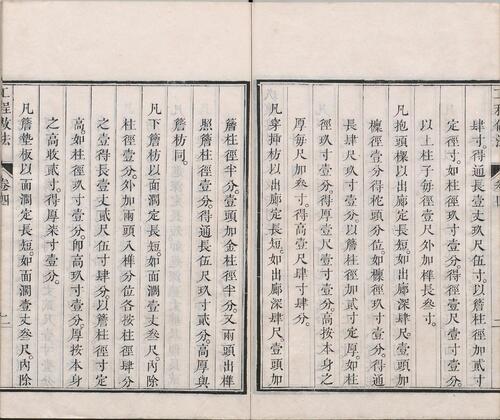 肆寸。得通長壹丈尺伍寸。以簷柱徑加
定徑寸。如柱徑玖寸壹分。得徑壹尺壹寸壹分。
以上柱子每徑壹尺外加榫長叁寸。
凡抱頭樑以出廊定長短。如出廊深肆尺。壹頭加
檁徑壹分得柁頭分位。如檁徑玖寸壹分。得通
長肆尺玖寸壹分。以簷柱徑加貳寸定厚。如柱
徑玖寸壹分。得厚壹尺壹寸壹分。高按本身之
厚每尺加叁寸。得高壹尺肆寸肆分。
凡穿插枋以出廊定長短。如出廊深肆尺。壹頭加
簷柱徑半分。壹頭加金柱徑半分。又兩頭出榫
照簷柱徑壹分。得通長伍尺玖寸貳分。高厚與
簷枋同。
凡下簷枋以面濶定長短。如面濶壹丈叁尺。內除
柱徑壹分。外加兩頭入榫分位。各按柱徑肆分
之壹。得長壹丈貳尺伍寸肆分。以簷柱徑寸定
高。如柱徑玖寸壹分。即高玖寸壹分。厚按本身
之高收貳寸。得厚柒寸壹分。
凡簷墊板以面濶定長短。如面濶壹丈叁尺。內除
工程做法
卷四
二